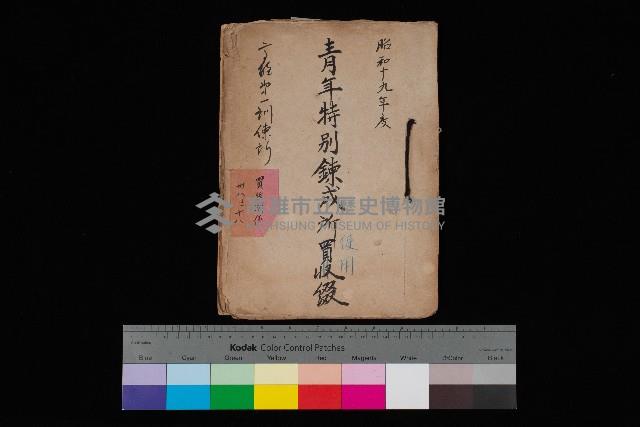 昭和十九年度
青年特別鍊成所買收綴
使用
第一訓練所
高雄市立歷史博物館
KAOHSIUNG MUSEUM OF HISTORY
Kodak Color Control Patches
Blue Cyan Green Yellow Red Magenta White 3/Color Black